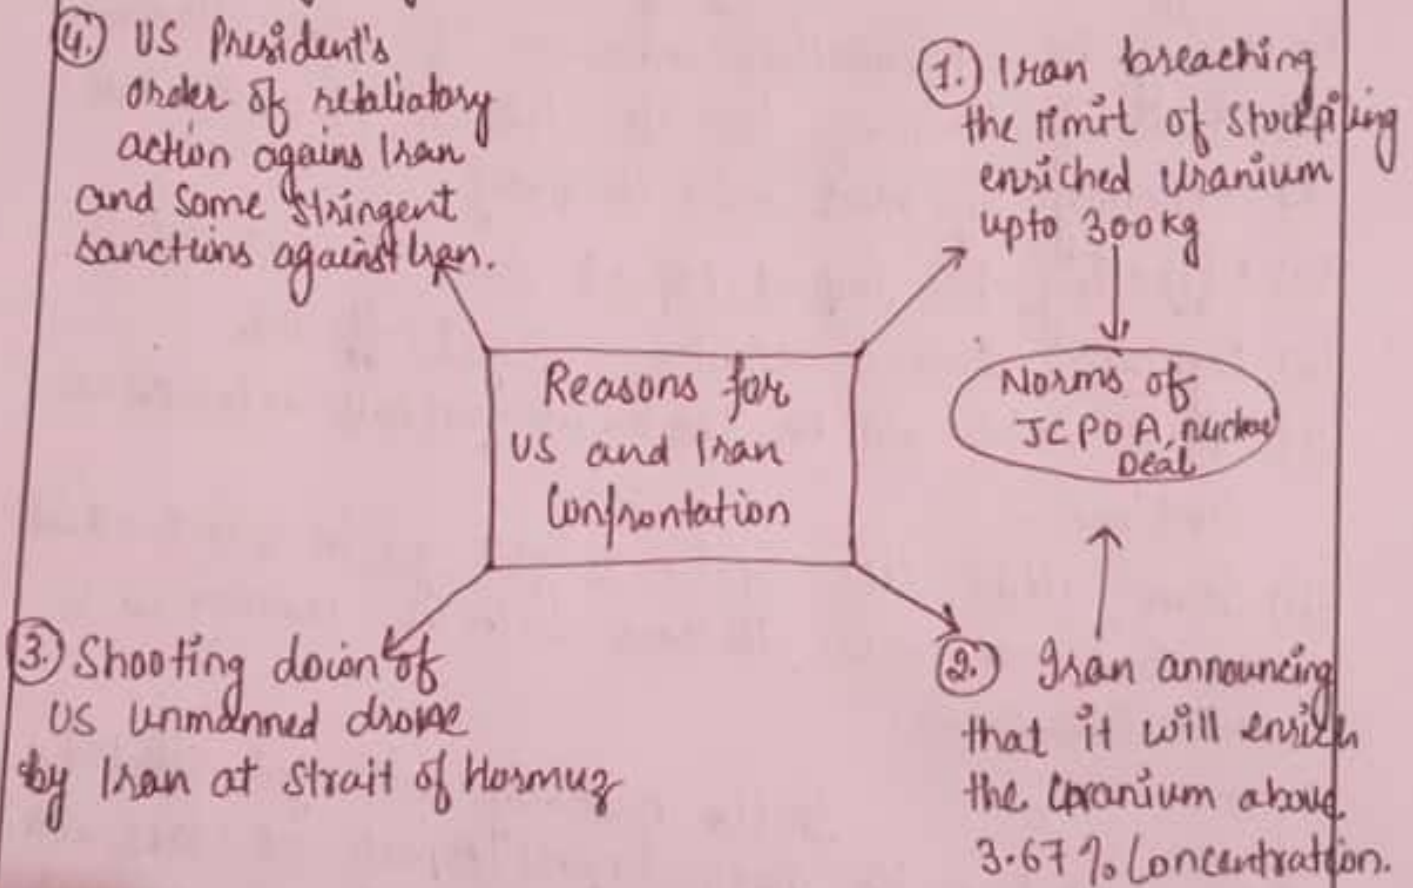 4. US President's
order of retaliatory
action agains Iran
and some stringent
sanctions against Iran.
1. Iran breaching
the limit of stockpiling
enriched Uranium
upto 300kg
Reasons for
US and Iran
Confrontation
Norms of
JCPOA, nuclear
Deal
3. Shooting down of
US unmanned drone
by Iran at Strait of Hormuz
2. Iran announcing
that it will enrich
the uranium above
3.67% Concentration.